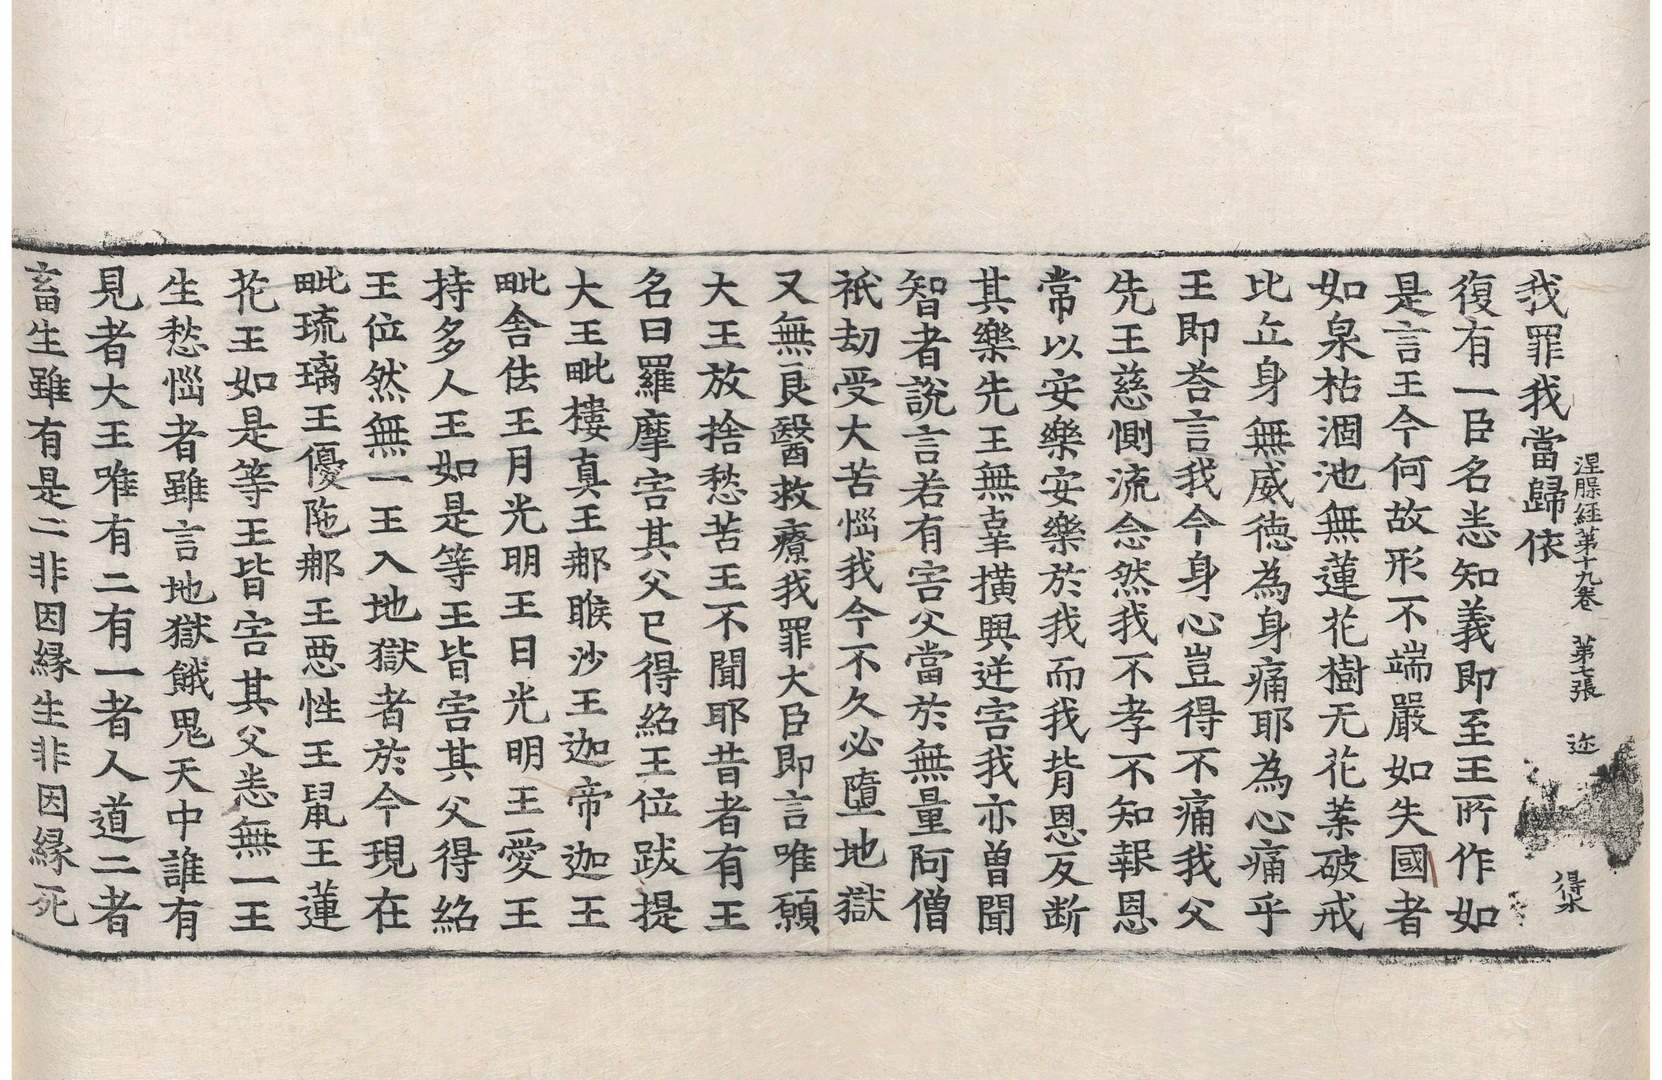 涅槃経第十九卷 第七張 迩 得水
我罪我當歸依
復有一臣名悉知義即至王所作如
是言王今何故形不端嚴如失國者
如泉枯涸池無蓮花樹无花葉破戒
比丘身無威徳為身痛耶為心痛乎
王即荅言我今身心豈得不痛我父
先王慈惻流念然我不孝不知報恩
常以安樂安樂於我而我背恩反断
其樂先王無辜撗興逆害我亦曽聞
智者説言若有害父當於無量阿僧
祇劫受大苦惱我今不久必墮地獄
又無良醫救療我罪大臣即言唯願
大王放捨愁苦王不聞耶昔者有王
名曰羅摩害其父已得紹王位跋提
大王毗樓真王郍睺沙王迦帝迦王
毗舎佉王月光明王日光明王愛王
持多人王如是等王皆害其父得紹
王位然無一王入地獄者於今現在
毗琉璃王優陁郍王恶性王鼠王蓮
花王如是等王皆害其父悉無一王
生愁惱者雖言地獄餓鬼天中誰有
見者大王唯有二有一者人道二者
畜生雖有是二非因縁生非因縁死